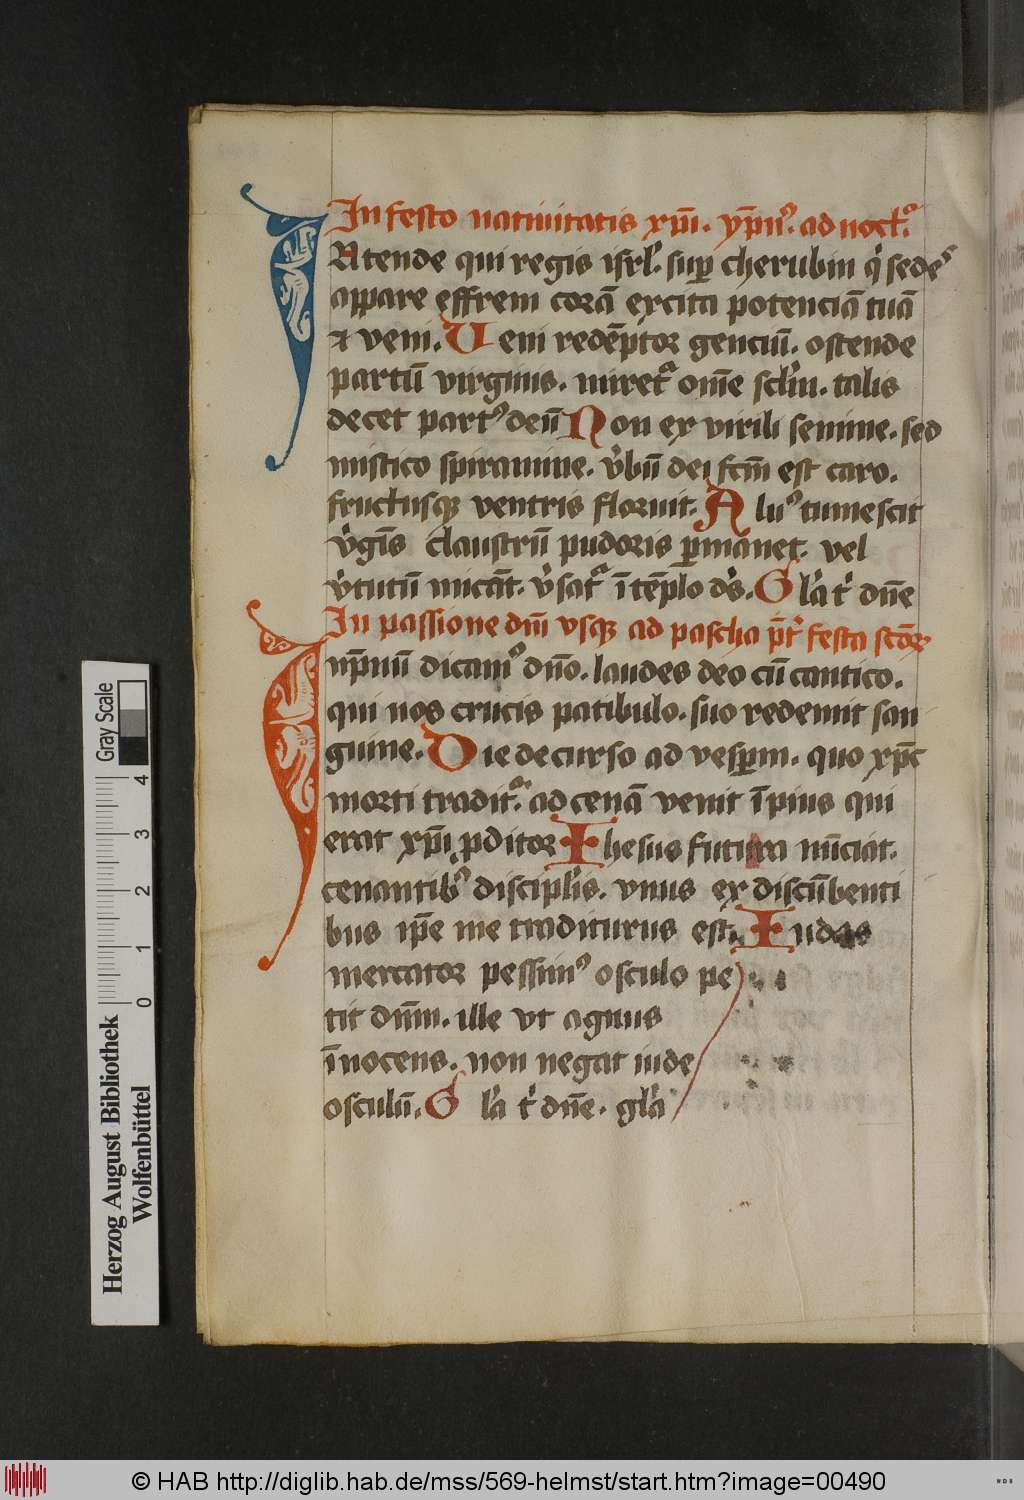 In festo natiuitatis xp̄i. yp̄nꝰ. ad noctꝭ.
INtende qui regis isrl̓. suꝑ cherubin q̓ sedeˢ
appare effrem corā excita potenciā tuā
⁊ veni. Veni redēptor genciū. ostende
partū virginis. miretᷣ om̄e scl̓m. talis
decet partꝰ deū Non ex virili semine. sed
mistico spiramine. v̓bū dei fcm̄ est caro.
fructusqꝫ ventris floruit. Aluꝰ tumescit
v̓gīs claustrū pudoris ꝑmanet. vel
v̓tutū micāt. v̓satᷣ ī tēplo dꝰs. Gl̓a t̓ dn̄e
In passione dn̄i vsqꝫ ad pascha p̄t̓ festa sc̄toꝝ
Ympnū dicamꝰ dn̄o. laudes deo cū cantico.
qui nos crucis patibulo. suo redemit san
guine. Die decurso ad vesꝑum. quo xp̄c
morti traditᷣ. ad cenā venit īpius qui
erat xp̄i ꝓditor Ihesus futura nūciat.
cenantibꝰ discipl̓is. vnus ex discūbenti
bus ip̄e me traditurus est. Iudas
mercator pessimꝰ osculo pe
tit dn̄m. ille vt agnus
īnocens. non negat iude
osculū. Gl̓a t̓ dn̄e. gl̓a
Gray Scale
4 3 2 1 0
Herzog August Bibliothek
Wolfenbüttel
© HAB http://diglib.hab.de/mss/569-helmst/start.htm?image=00490